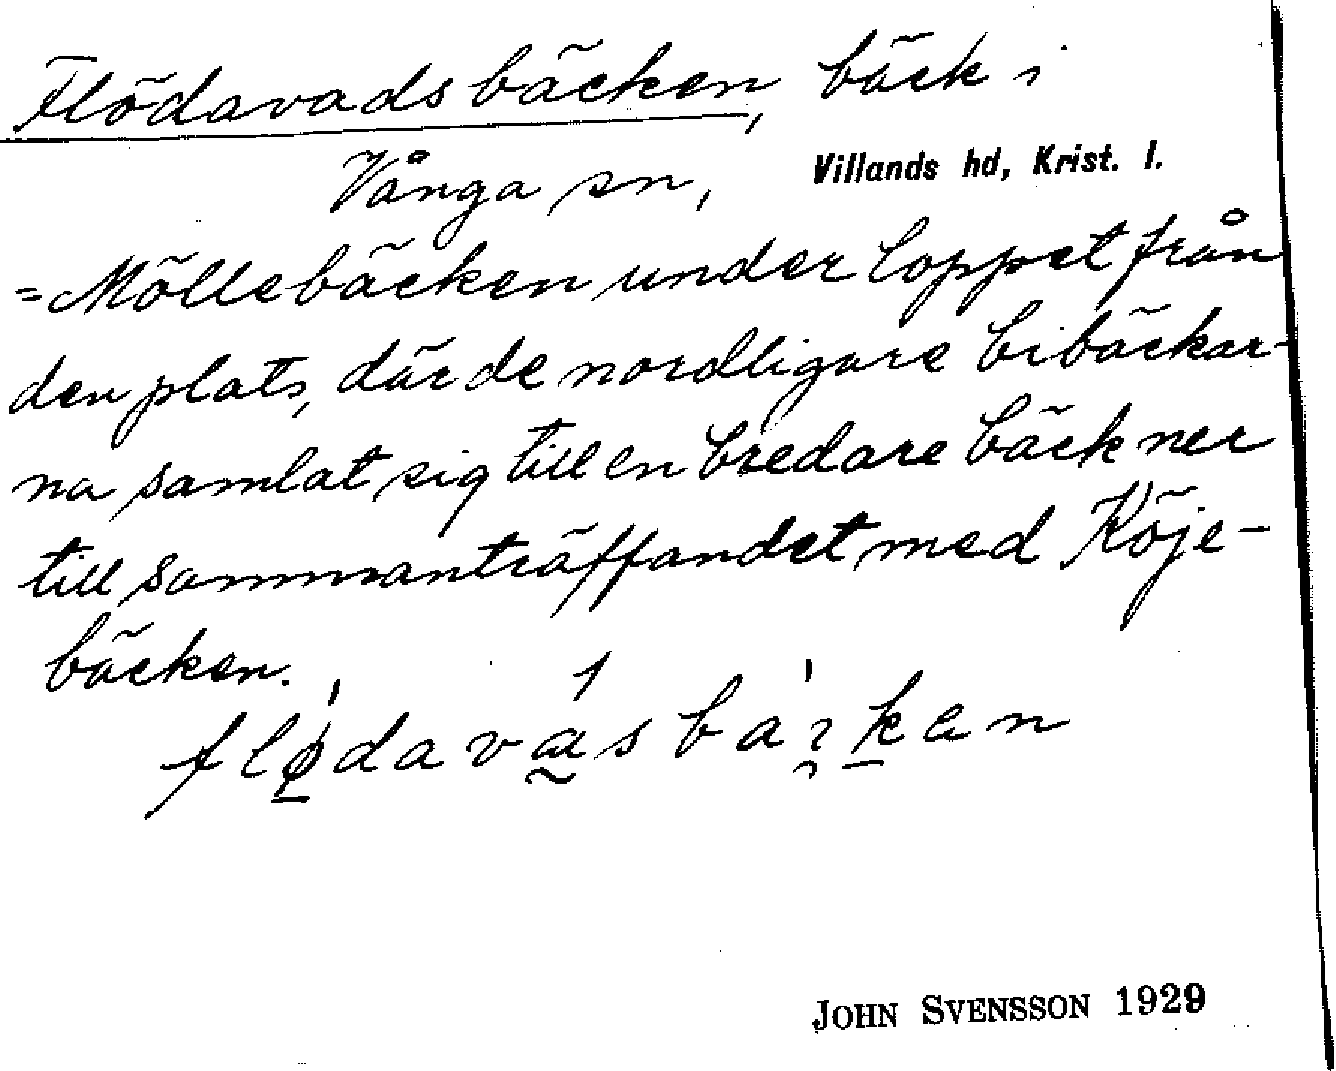 Flödavadsbäcken, bäck i
Vånga sn, Villands hd, Krist. l.
= Möllebäcken under loppet från
den plats, där de nordligare bibäckar-
na samlat sig till en bredare bäck ner
till sammanträffandet med Köje-
bäcken.
JOHN SVENSSON 1929